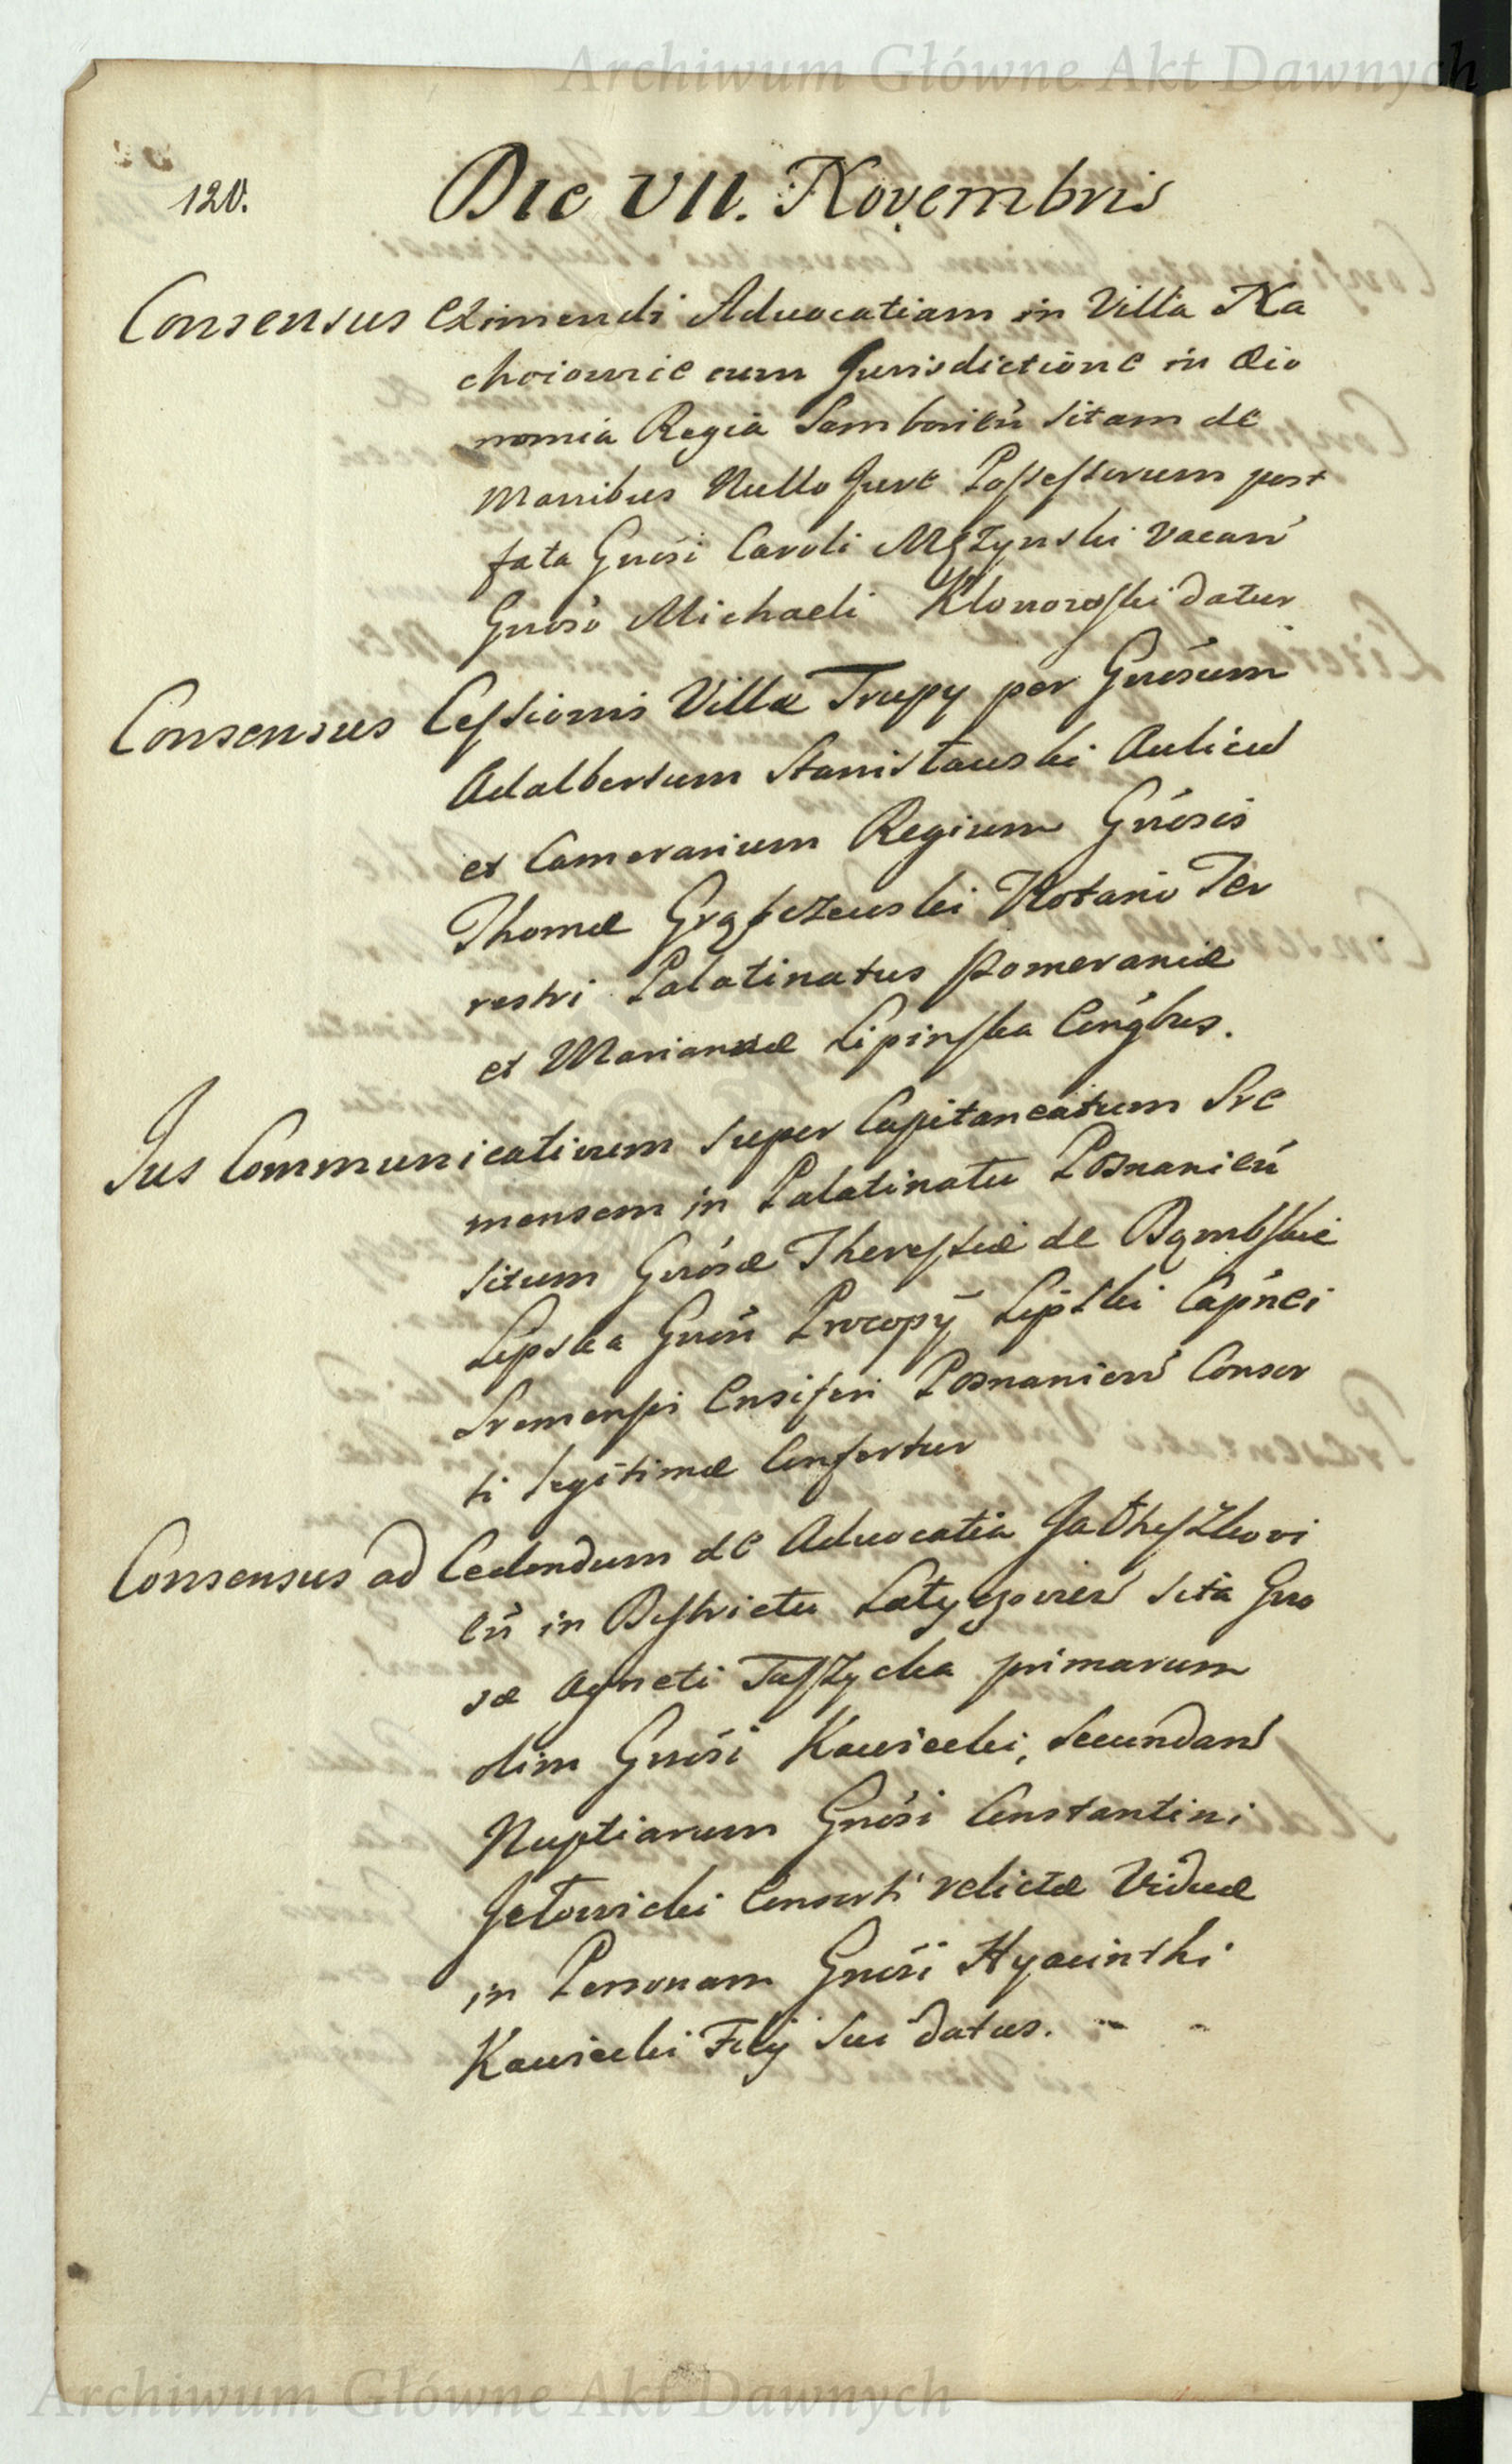 Archiwum Główne Akt Dawnych
120.
Die VII. Novembris
Consensus Eximendi Advocatiam in Villa Na
choiowie cum Jurisdictione in Oeio
nomia Regia Samborień sitam de
Manibus Nullo Jure Possessorum post
fata Gnosi Caroli Mężynski vacań
Gnoso Michaeli Klonowski datur
Consensus Cessionis Villæ Trupy per Gnosum
Adalbertum Stanisławski Aulicū
et Camerarium Regium Gnosis
Thomæ Grąbczewski Notario Ter
restri Palatinatus Pomeraniæ
et Mariannæ Lipinska Conġbus.
Jus Communicativum super Capitaneatum Sre
mensem in Palatinatu Posnanień
situm Gnosæ Theressiæ de Dąmbskie
Lipska Gnosi Procopÿ Lipski Capnei
Sremensi Ensiferi Posnanień Consor
ti legitimæ Confertur
Consensus ad Cedendum de Advocatia
eń in Districtu Latyczovień sita Gno
sæ Agneti Taszycka primarum
olim Gnosi Kawiecki, secundań
Nuptiarum Gnosi Constantini
Jełowicki Consorti relictæ Viduæ
in Personam Gnosi Hyacinthi
Kawiecki Filÿ sui datus. - -
Archiwum Główne Akt Dawnych